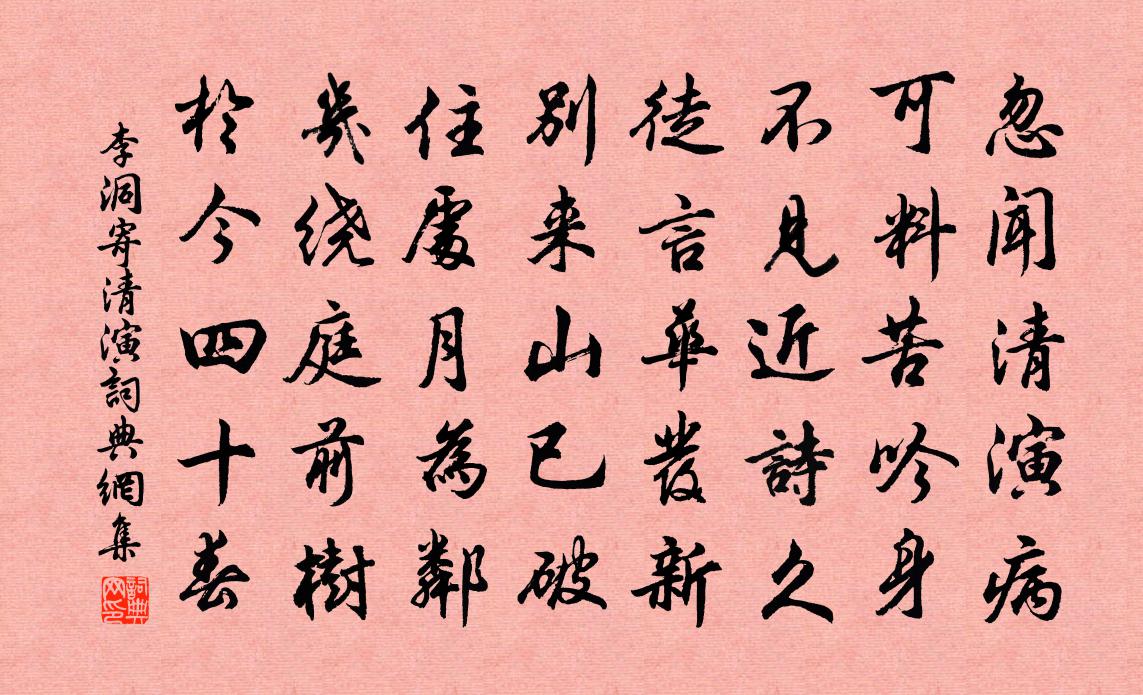 忽聞清演病
可料苦吟身
不見近詩久
徒言華發新
別来山已破
住處月為鄰
幾绕庭前樹
於今四十春
李洞寄清演詞典網集
詞典網印